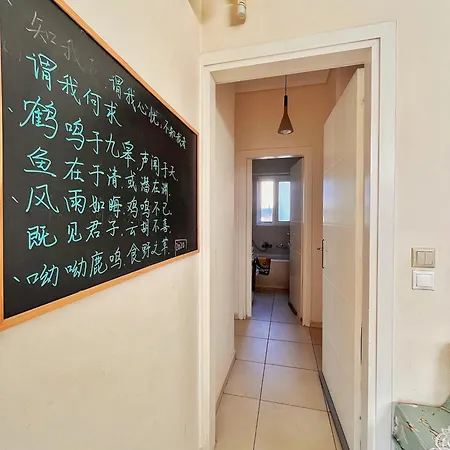 知我 谓我心忧,不知我者
谓我何求
鹤鸣于九皋.声闻于天
鱼在于渚.或潜在渊
风雨如晦.鸡鸣不已
既见君子.云胡不喜.
呦呦鹿鸣.食野之苹.